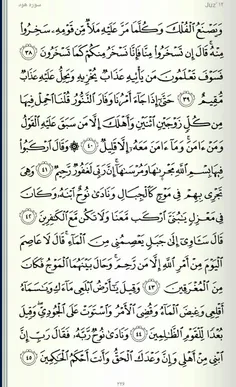 سورة هود
وَيَصْنَعُ ٱلْفُلْكَ وَكُلَّمَا مَرَّ عَلَيْهِ مَلَأٌ مِّن قَوْمِهِۦ سَخِرُوا۟
مِنْهُ قَالَ إِن تَسْخَرُوا۟ مِنَّا فَإِنَّا نَسْخَرُ مِنكُمْ كَمَا تَسْخَرُونَ ٣٨
فَسَوْفَ تَعْلَمُونَ مَن يَأْتِيهِ عَذَابٌ يُخْزِيهِ وَيَحِلُّ عَلَيْهِ عَذَابٌ
مُّقِيمٌ ٣٩ حَتَّىٰٓ إِذَا جَآءَ أَمْرُنَا وَفَارَ ٱلتَّنُّورُ قُلْنَا ٱحْمِلْ فِيهَا
مِن كُلٍّ زَوْجَيْنِ ٱثْنَيْنِ وَأَهْلَكَ إِلَّا مَن سَبَقَ عَلَيْهِ ٱلْقَوْلُ
وَمَنْ ءَامَنَ وَمَآ ءَامَنَ مَعَهُۥٓ إِلَّا قَلِيلٌ ٤٠ وَقَالَ ٱرْكَبُوا۟
فِيهَا بِسْمِ ٱللَّهِ مَجْر۪ىٰهَا وَمُرْسَىٰهَآ إِنَّ رَبِّى لَغَفُورٌ رَّحِيمٌ ٤١ وَهِىَ
تَجْرِى بِهِمْ فِى مَوْجٍ كَٱلْجِبَالِ وَنَادَىٰ نُوحٌ ٱبْنَهُۥ وَكَانَ
فِى مَعْزِلٍ يَـٰبُنَىَّ ٱرْكَب مَّعَنَا وَلَا تَكُن مَّعَ ٱلْكَـٰفِرِينَ ٤٢
قَالَ سَـَٔاوِىٓ إِلَىٰ جَبَلٍ يَعْصِمُنِى مِنَ ٱلْمَآءِ قَالَ لَا عَاصِمَ
ٱلْيَوْمَ مِنْ أَمْرِ ٱللَّهِ إِلَّا مَن رَّحِمَ وَحَالَ بَيْنَهُمَا ٱلْمَوْجُ فَكَانَ
مِنَ ٱلْمُغْرَقِينَ ٤٣ وَقِيلَ يَـٰٓأَرْضُ ٱبْلَعِى مَآءَكِ وَيَـٰسَمَآءُ
أَقْلِعِى وَغِيضَ ٱلْمَآءُ وَقُضِىَ ٱلْأَمْرُ وَٱسْتَوَتْ عَلَى ٱلْجُودِىِّ وَقِيلَ
بُعْدًا لِّلْقَوْمِ ٱلظَّـٰلِمِينَ ٤٤ وَنَادَىٰ نُوحٌ رَّبَّهُۥ فَقَالَ رَبِّ إِنَّ
ٱبْنِى مِنْ أَهْلِى وَإِنَّ وَعْدَكَ ٱلْحَقُّ وَأَنتَ أَحْكَمُ ٱلْحَـٰكِمِينَ ٤٥
٢٢٦